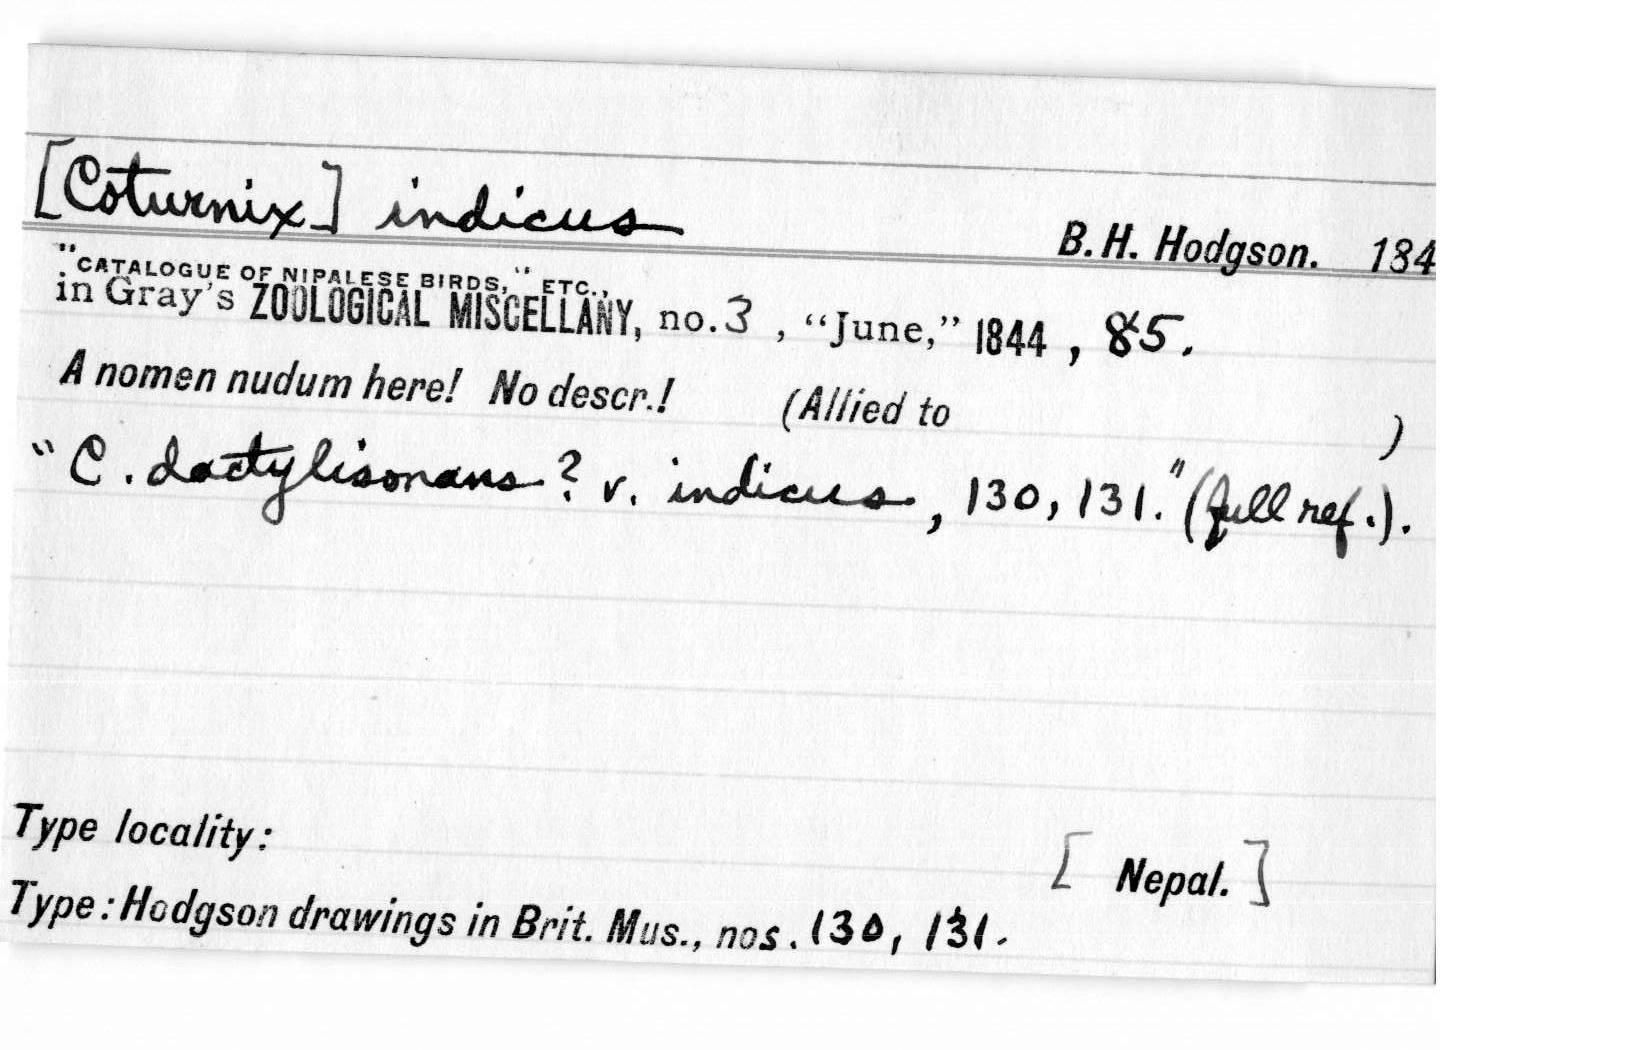 [Coturnix] indicus
B. H. Hodgson. 184
"CATALOGUE OF NIPALESE BIRDS," ETC.,
in Gray's ZOOLOGICAL MISCELLANY, no. 3, "June," 1844, 85.
A nomen nudum here! No descr.! (Allied to )
"C. dactylisonans? v. indicus, 130, 131." (full ref.).
Type locality: [Nepal.]
Type: Hodgson drawings in Brit. Mus., nos. 130, 131.